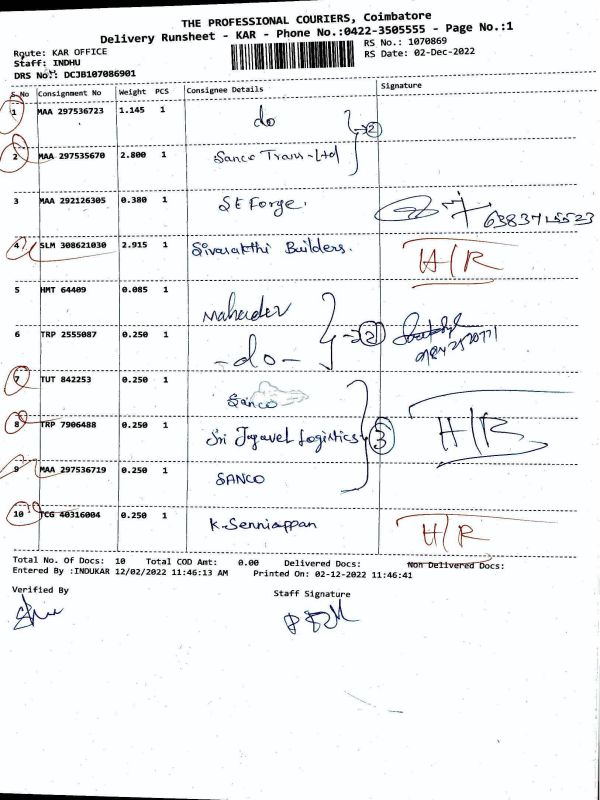 THE PROFESSIONAL COURIERS, Coimbatore
Delivery Runsheet - KAR - Phone No.:0422-3505555 - Page No.:1
Route: KAR OFFICE
RS No.: 1070869
Staff: INDHU
RS Date: 02-Dec-2022
DRS No.: DCJB107086901
S No Consignment No Weight PCS Consignee Details Signature
1 MAA 297536723 1.145 1 do
2
2 MAA 297535670 2.800 1 Sanco Trans-Ltd
3 MAA 292126305 0.380 1 SE Forge. 6383715523
4 SLM 308621030 2.915 1 Sivasakthi Builders. H/R
5 HMT 64409 0.085 1 Mahadev
6 TRP 2555087 0.250 1 -do- 2
7 TUT 842253 0.250 1 Sanco
8 TRP 7906488 0.250 1 Sri Jayavel Logistics 3 H/R
9 MAA 297536719 0.250 1 SANCO
10 TCG 40316004 0.250 1 K.Senniappan H/R
Total No. Of Docs: 10 Total COD Amt: 0.00 Delivered Docs: Non Delivered Docs:
Entered By :INDUKAR 12/02/2022 11:46:13 AM Printed On: 02-12-2022 11:46:41
Verified By Staff Signature